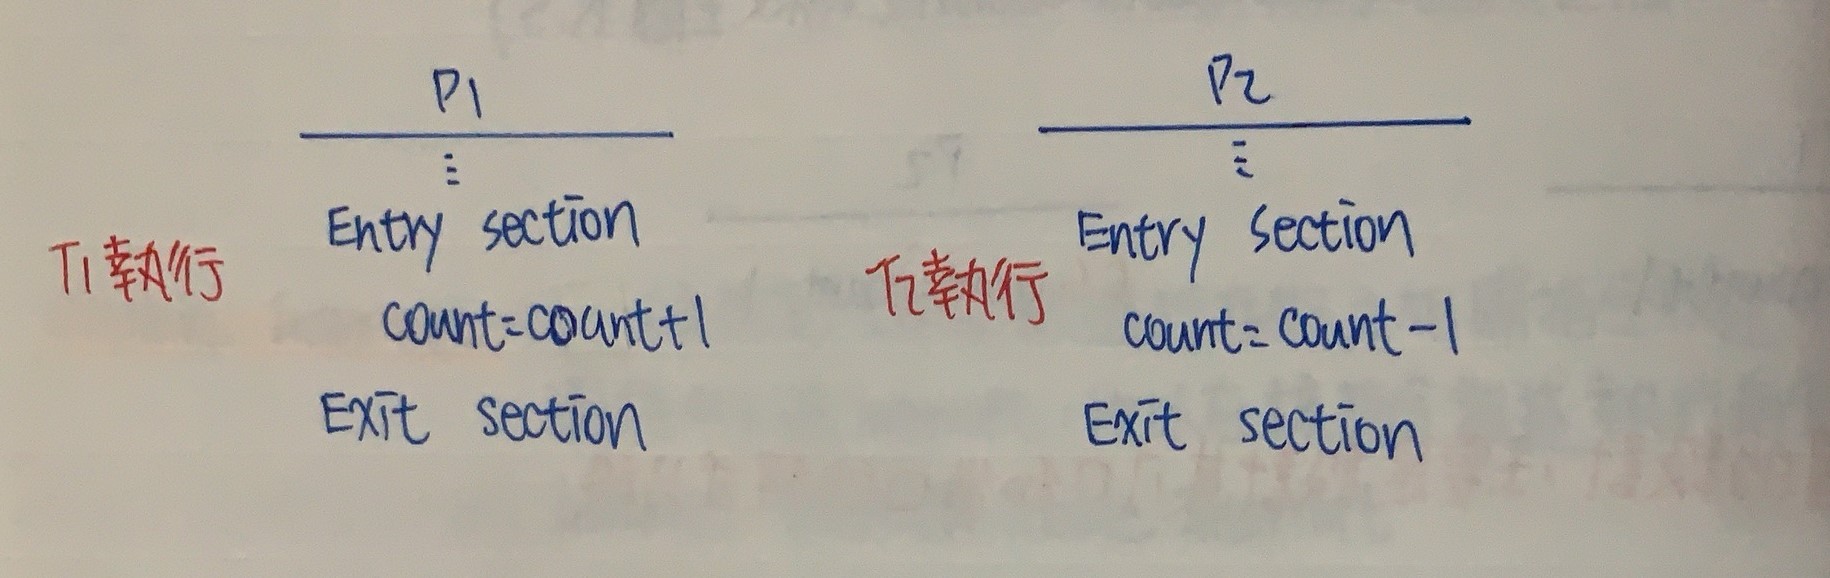 P1
⋮
Entry section
T1執行
count=count+1
Exit section
P2
⋮
Entry section
T2執行
count=count-1
Exit section